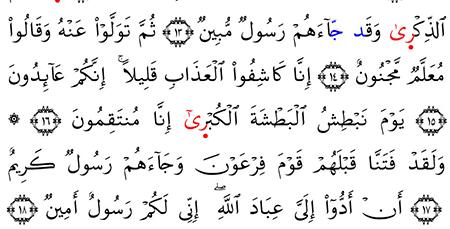 ٱلذِّكۡرَىٰ وَقَد جَّآءَهُمۡ رَسُولٞ مُّبِينٞ ﴿١٣﴾ ثُمَّ تَوَلَّوۡاْ عَنۡهُ وَقَالُواْ
مُعَلَّمٞ مَّجۡنُونٌ ﴿١٤﴾ إِنَّا كَاشِفُواْ ٱلۡعَذَابِ قَلِيلًاۚ إِنَّكُمۡ عَآئِدُونَ
﴿١٥﴾ يَوۡمَ نَبۡطِشُ ٱلۡبَطۡشَةَ ٱلۡكُبۡرَىٰٓ إِنَّا مُنتَقِمُونَ ﴿١٦﴾ ۞
وَلَقَدۡ فَتَنَّا قَبۡلَهُمۡ قَوۡمَ فِرۡعَوۡنَ وَجَآءَهُمۡ رَسُولٞ كَرِيمٌ
﴿١٧﴾ أَنۡ أَدُّوٓاْ إِلَيَّ عِبَادَ ٱللَّهِۖ إِنِّي لَكُمۡ رَسُولٌ أَمِينٞ ﴿١٨﴾